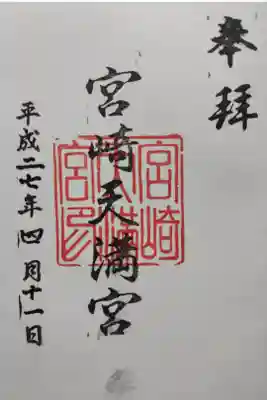 奉拝
宮崎天満宮
宮崎天満宮印
平成二七年四月十一日